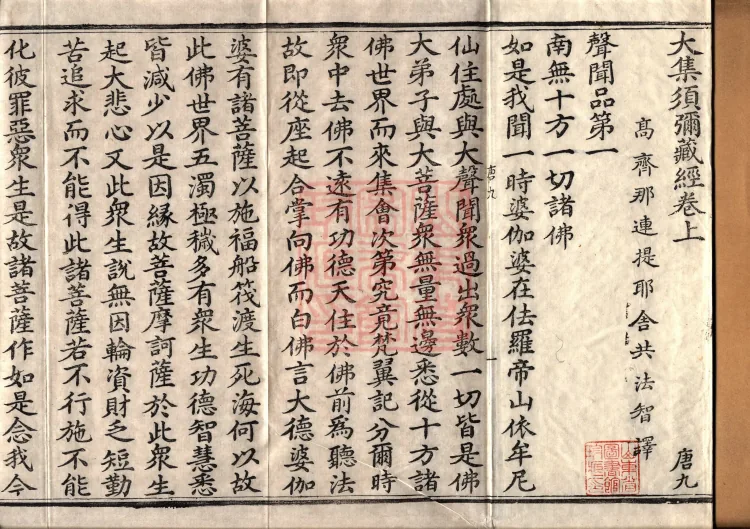 大集須彌藏經卷上
唐九
高齊那連提耶舍共法智譯
聲聞品第一
南無十方一切諸佛
如是我聞一時婆伽婆在佉羅帝山依牟尼
唐九
一
仙住處與大聲聞衆過出衆數一切皆是佛
大弟子與大菩薩衆無量無邊悉從十方諸
佛世界而來集會次第究竟梵翼記分爾時
衆中去佛不遠有功德天住於佛前爲聽法
故即從座起合掌向佛而白佛言大德婆伽
婆有諸菩薩以施福船筏渡生死海何以故
此佛世界五濁極穢多有衆生功德智慧悉
皆減少以是因緣故菩薩摩訶薩於此衆生
起大悲心又此衆生說無因輪資財乏短勤
苦追求而不能得此諸菩薩若不行施不能
化彼罪惡衆生是故諸菩薩作如是念我今